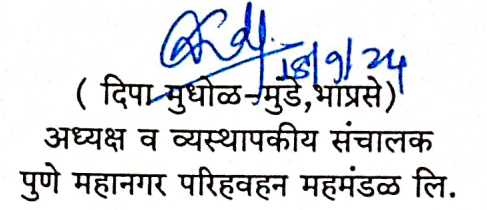 18/9/24
( दिपा मुधोळ-मुंडे,भाप्रसे)
अध्यक्ष व व्यस्थापकीय संचालक
पुणे महानगर परिहवहन महमंडळ लि.